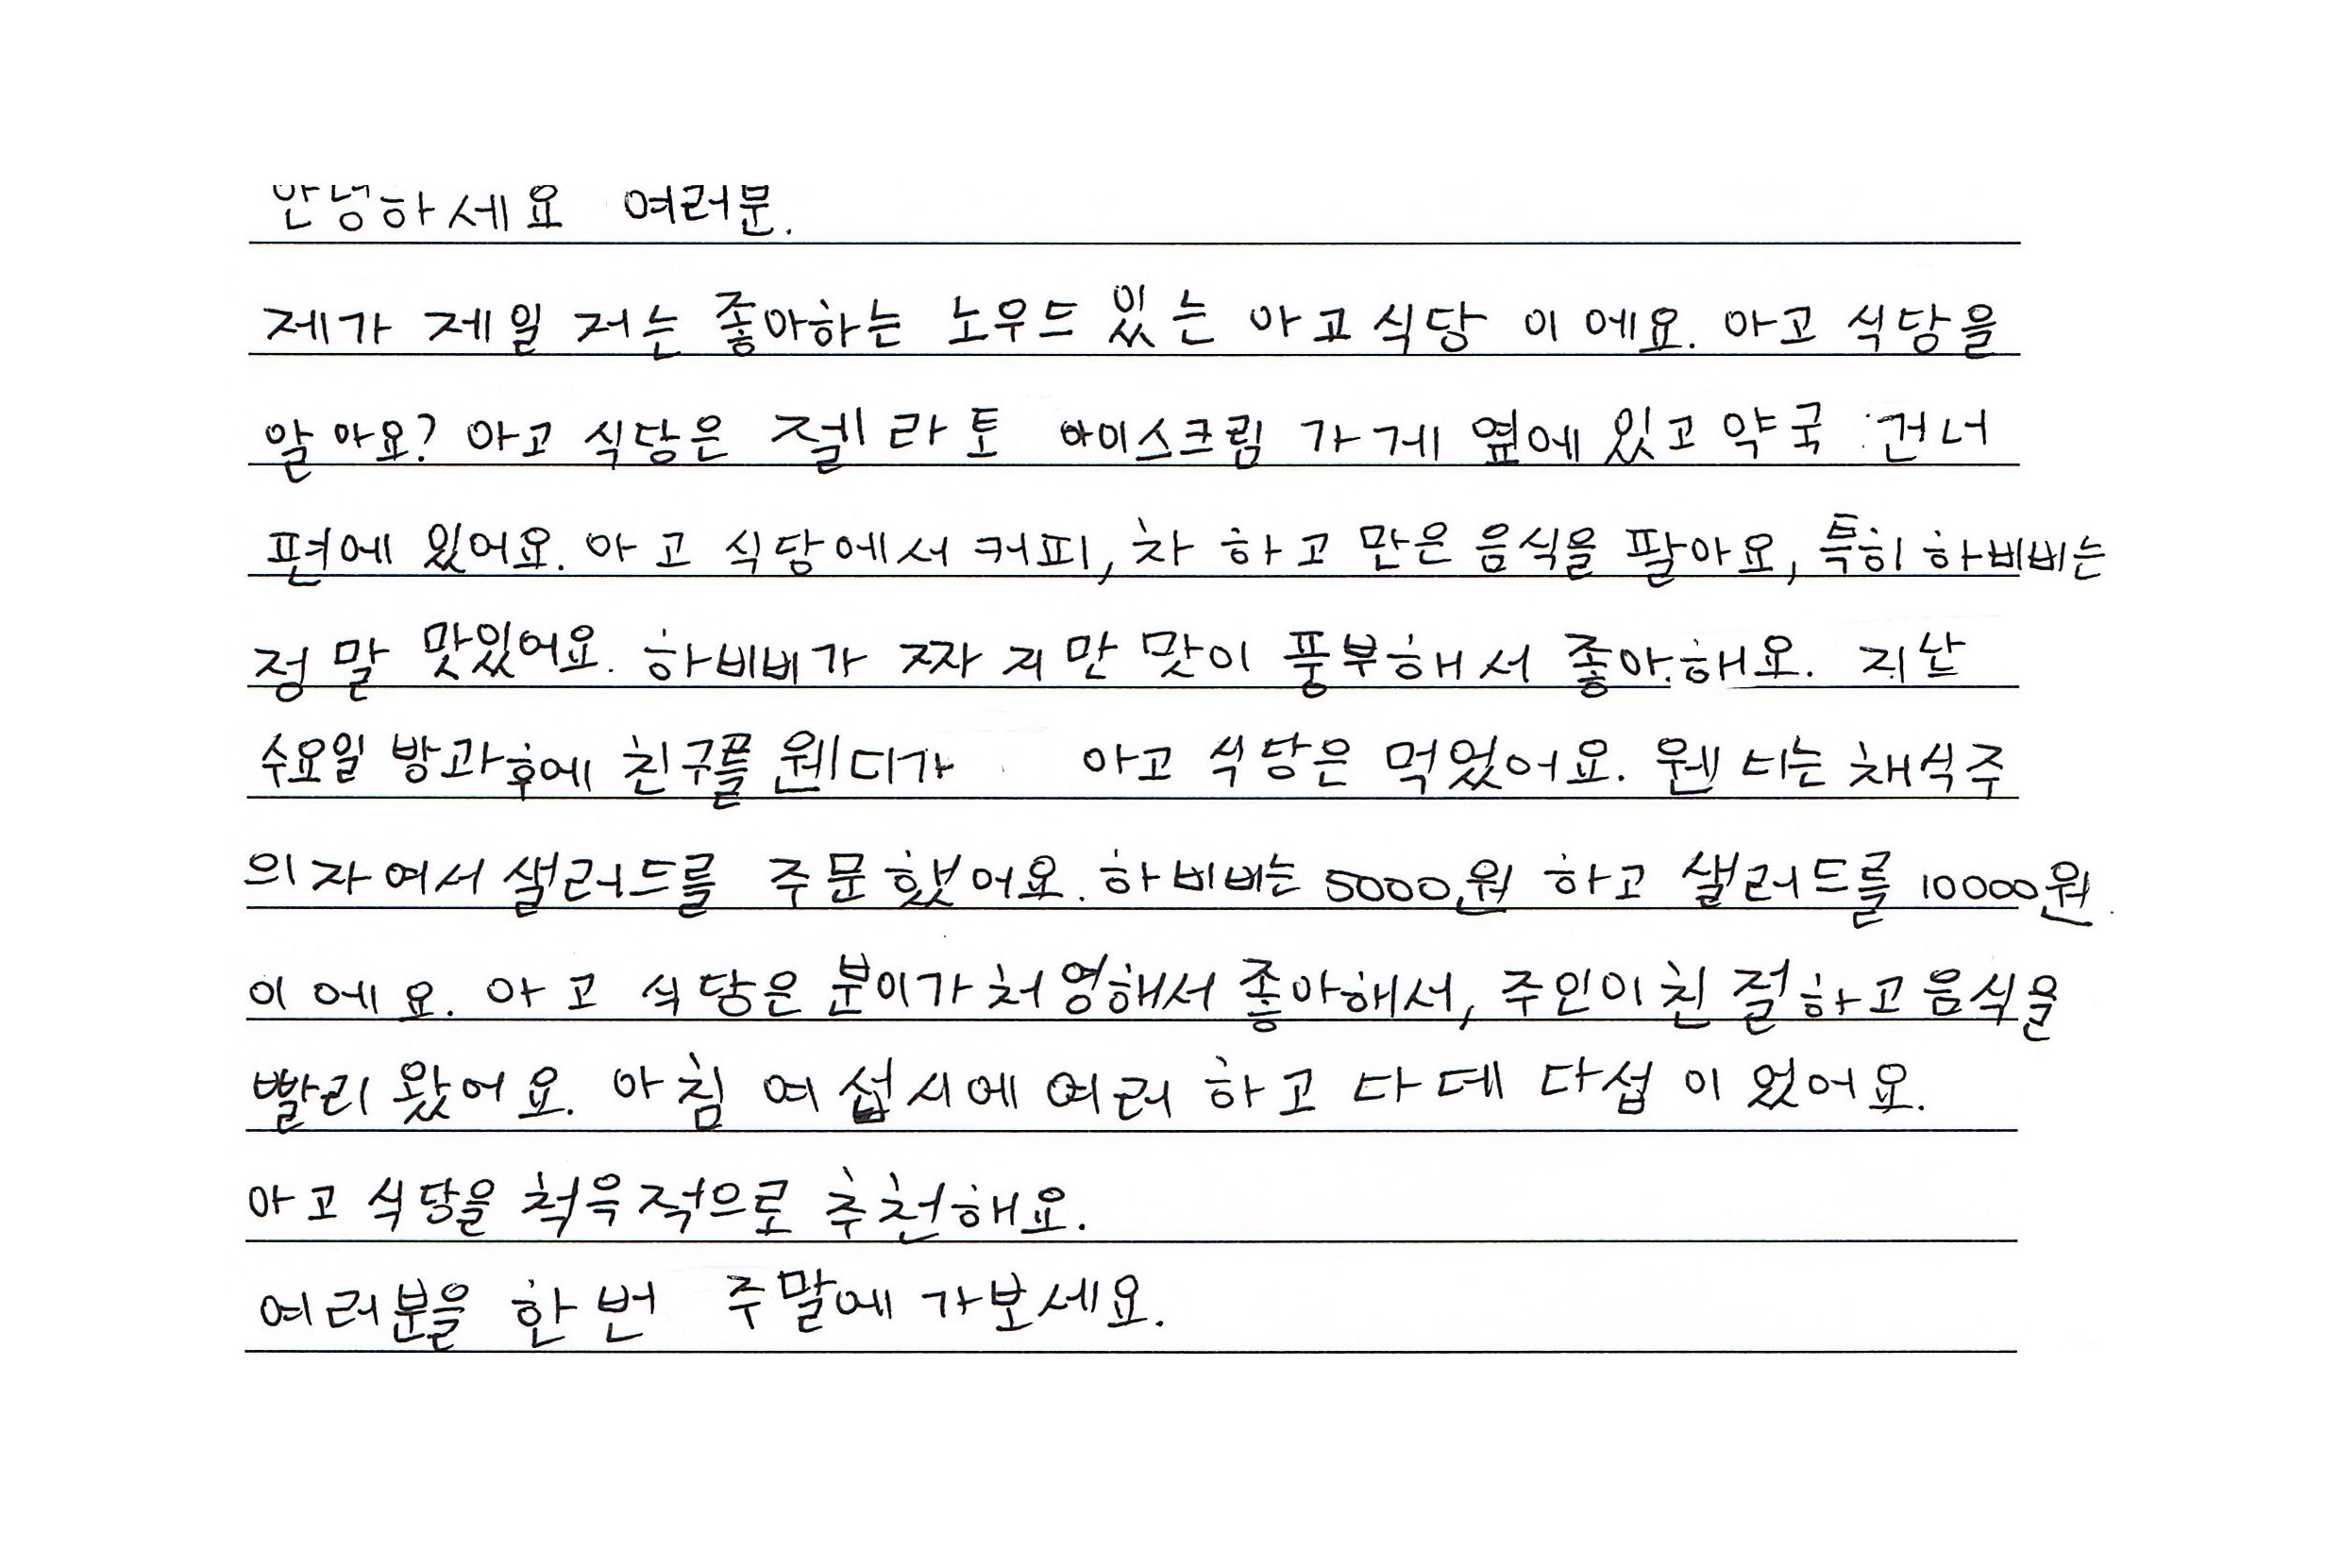 안녕하세요 여러분.
제가 제일 저는 좋아하는 노우드 있는 아고식당 이에요. 아고 식당을
알아요? 아고 식당은 젤라토 아이스크림 가게 옆에 있고 약국 건너
편에 있어요. 아고 식당에서 커피, 차 하고 만은 음식을 팔아요, 특히 하비비는
정말 맛있어요. 하비비가 짜지만 맛이 풍부해서 좋아해요. 지난
수요일 방과후에 친구를 웬디가 아고 식당은 먹었어요. 웬더는 채식주
의자여서 샐러드를 주문했어요. 하비비는 5000원 하고 샐러드를 10000원
이에요. 아고 식당은 분이가 처영해서 좋아해서, 주인이 친절하고 음식을
빨리 왔어요. 아침 여섭시에 여러 하고 다데 다섭 이었어요.
아고 식당을 척윽적으로 추천해요.
여러분을 한번 주말에 가보세요.